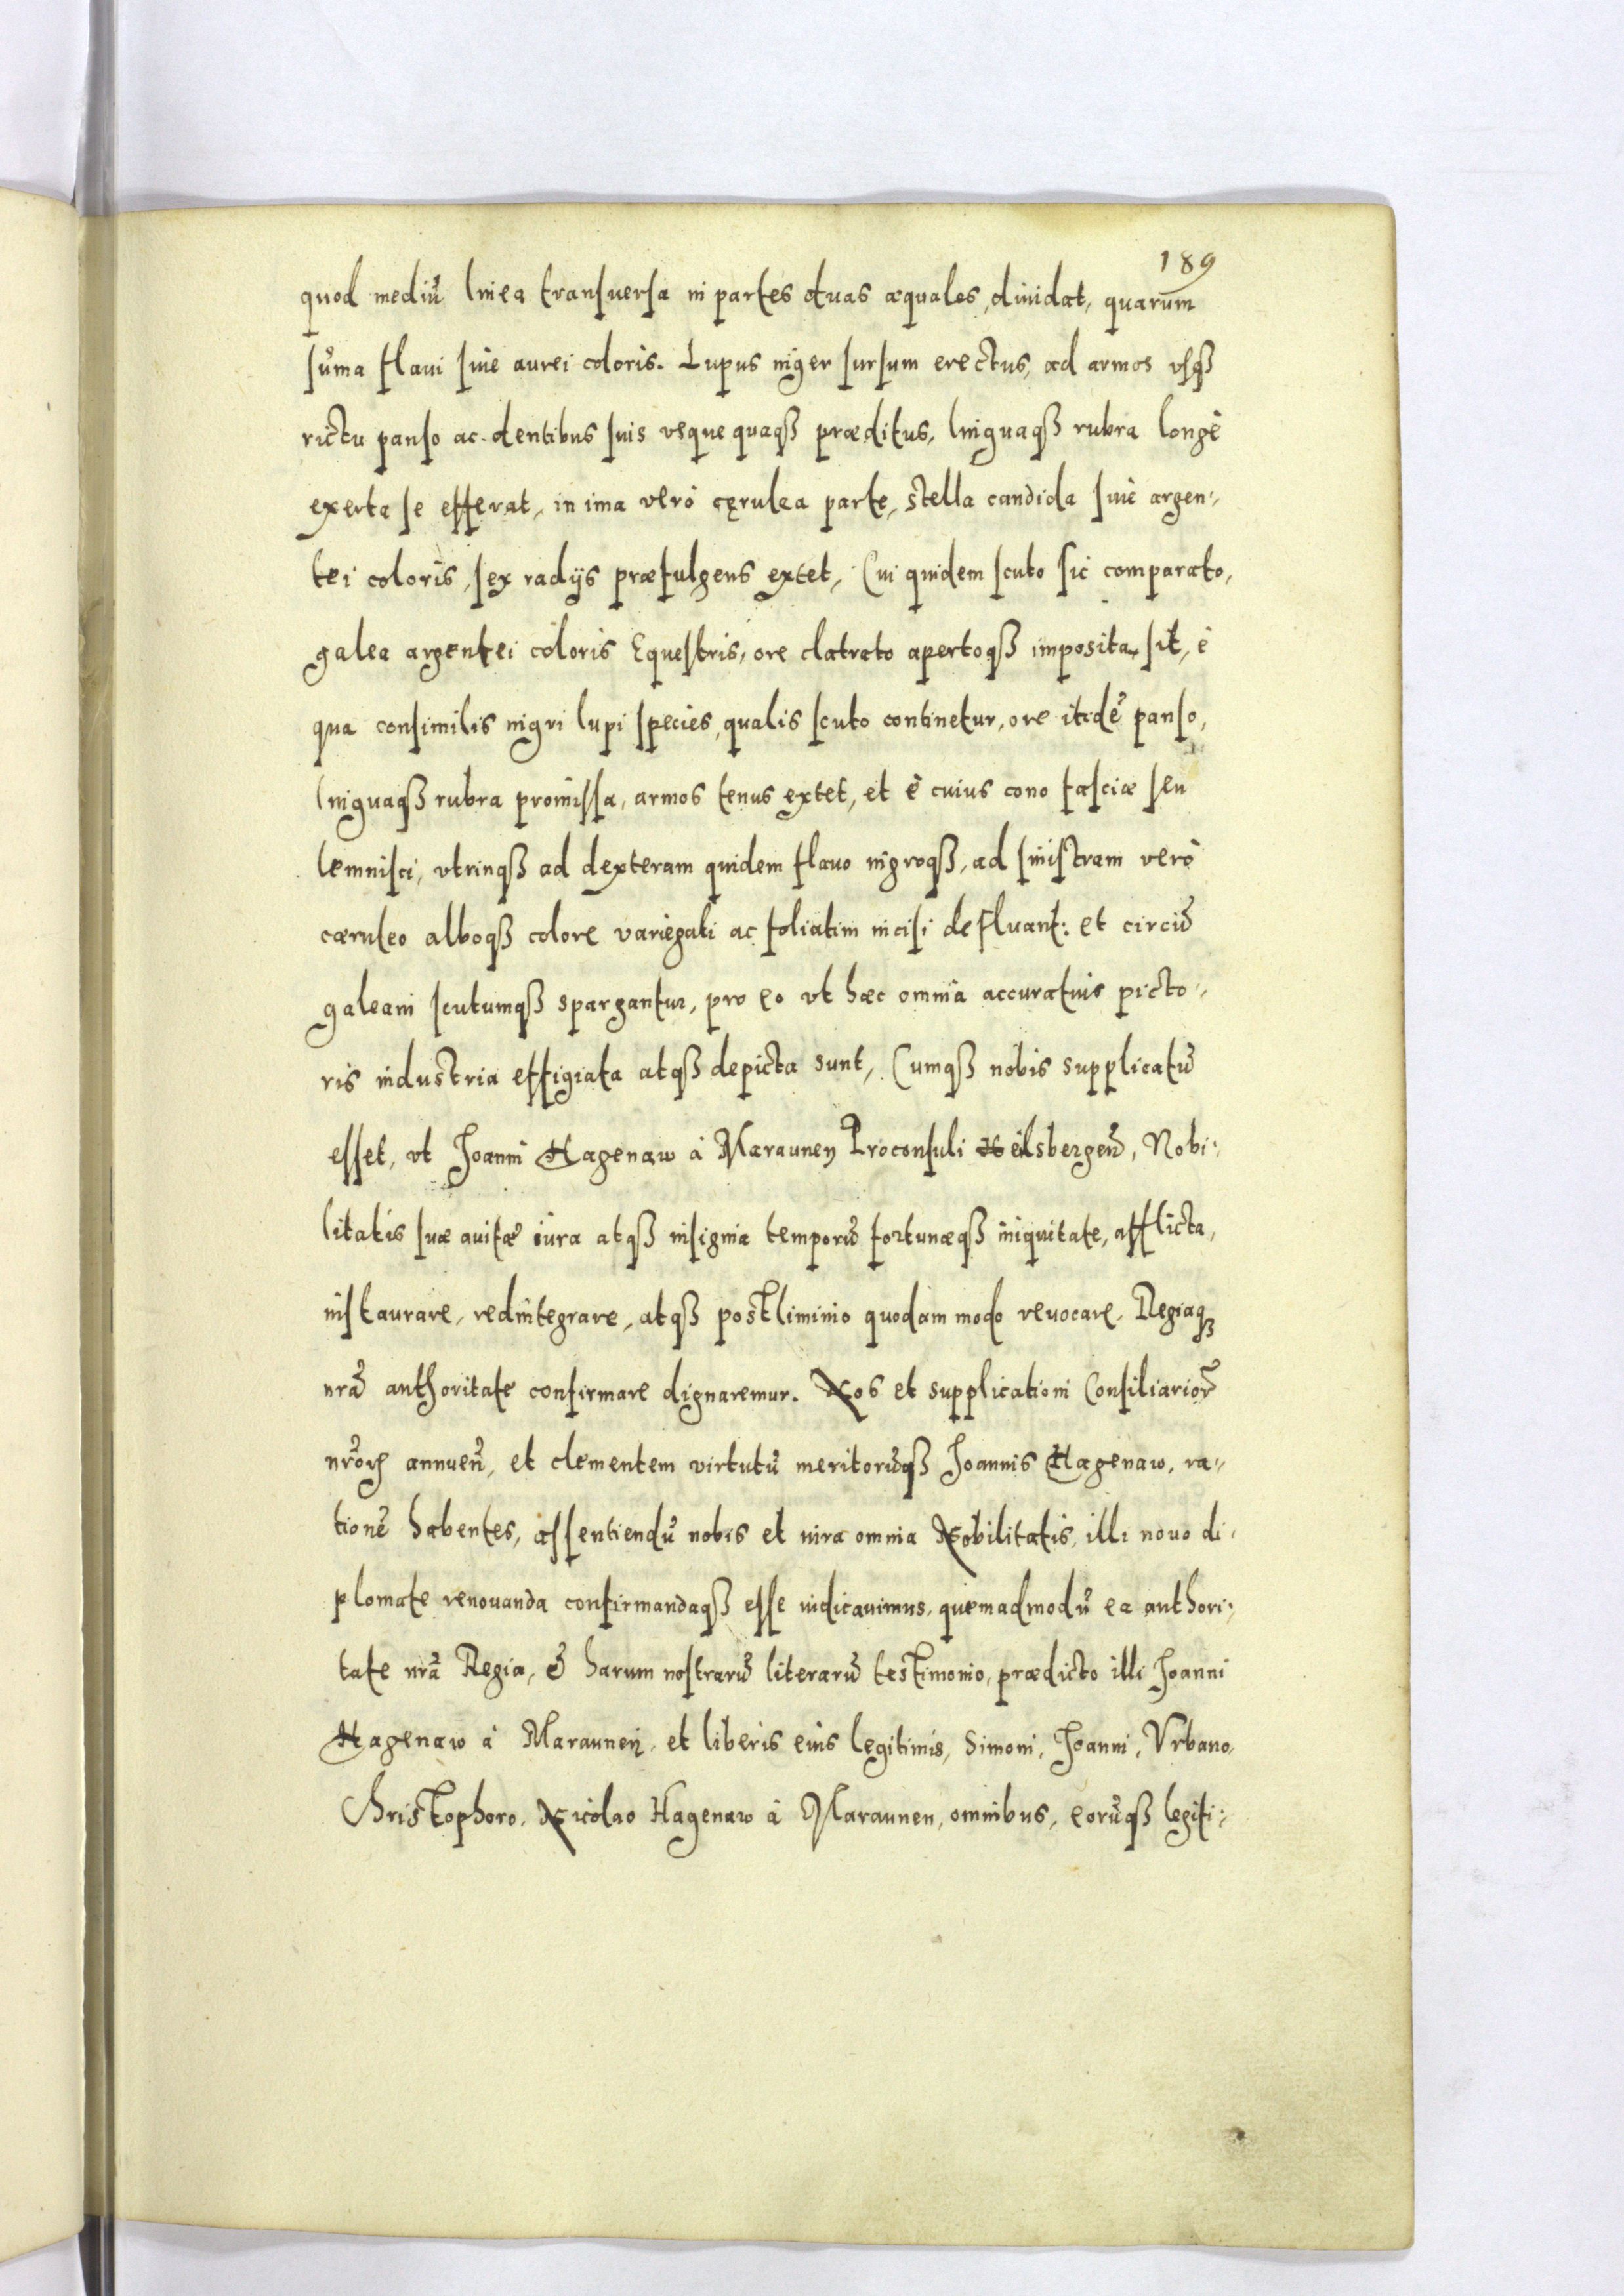 189
quod mediū linea transuersa in partes duas æquales, diuidat, quarum
sūma flaui siue aurei coloris. Lupus niger sursum erectus, ad armos vsqꝫ
rictu panso ac dentibus suis vsque quaqꝫ præditus, linguaqꝫ rubra longè
exerta se efferat, in ima verò cęrulea parte, stella candida siue argen-
tei coloris, sex radijs præfulgens extet, Cui quidem scuto sic comparato,
galea argentei coloris Equestris, ore clatrato apertoqꝫ imposita sit, è
qua consimilis nigri lupi species, qualis scuto continetur, ore itidē panso,
linguaqꝫ rubra promissa, armos tenus extet, et è cuius cono fasciæ seu
lemnisci, vtrinqꝫ ad dexteram quidem flauo nigroqꝫ, ad sinistram verò
cæruleo alboqꝫ colore variegati ac foliatim incisi defluant: et circū
galeam scutumqꝫ spargantur, pro eo vt hæc omnia accuratius picto-
ris industria effigiata atqꝫ depicta sunt, Cumqꝫ nobis supplicatū
esset, vt Joanni Hagenaw à Maraunen Proconsuli Heilsbergeñ, Nobi-
litatis suæ auitæ iura atqꝫ insignia temporū fortunæqꝫ iniquitate, afflicta,
instaurare, redintegrare, atqꝫ postliminio quodam modo reuocare, Regiaqꝫ
nrā authoritate confirmare dignaremur. Nos et supplicationi Consiliariorū
nrōrꝫ annueñ, et clementem virtutū meritorūqꝫ Joannis Hagenaw, ra-
tionē habentes, assentiendū nobis et iura omnia Nobilitatis, illi nouo di-
plomate renouanda confirmandaqꝫ esse iudicauimus, quemadmodū ea authori-
tate nrā Regia, & harum nostrarū literarū testimonio, prædicto illi Joanni
Hagenaw à Maraunen, et liberis eius legitimis, Simoni, Joanni, Vrbano,
Christophoro, Nicolao Hagenaw à Maraunen, omnibus, eorūqꝫ legiti-